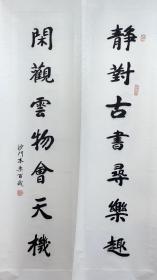 靜對古書尋樂趣
閑觀雲物會天機
沙門本慧百歲